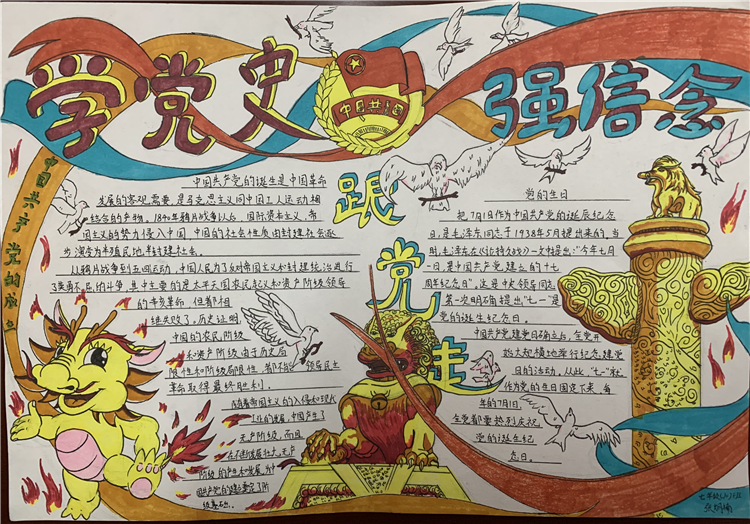 学党史
强信念
中国共青团
中国共产党的成立
跟党走
中国共产党的诞生是中国革命
发展的客观需要,是马克思主义同中国工人运动相
结合的产物。1840年鸦片战争以后,国际资本主义、帝
国主义的势力侵入中国,中国的社会性质由封建社会逐
步演变为半殖民地、半封建社会。
从鸦片战争到五四运动,中国人民为了反对帝国主义和封建统治进行
了英勇不屈的斗争,其中主要的是太平天国农民起义和资产阶级领导
的辛亥革命,但都相
继失败了。历史证明
中国的农民阶级
和资产阶级由于历史局
限性和阶级局限性,都不能领导民主
革命取得最终胜利。
随着帝国主义的入侵和现代
工业的发展,中国产生了
无产阶级,而且
在不断发展壮大,无产
阶级的产生和发展,为中
国共产党的建立奠定了阶
级基础。
党的生日
把7月1日作为中国共产党的诞辰纪念
日,是毛泽东同志于1938年5月提出来的。当
时,毛泽东在《论持久战》一文中提出:"今年七月
一日,是中国共产党建立的十七
周年纪念日",这是中央领导同志
第一次明确提出"七一"是
党的诞生纪念日。
中国共产党建党日确立后,全党开
始大规模地举行纪念建党
日的活动,从此,"七一"就
作为党的生日固定下来,每
年的7月1日,
全党都要热烈庆祝
党的诞生纪
念日。